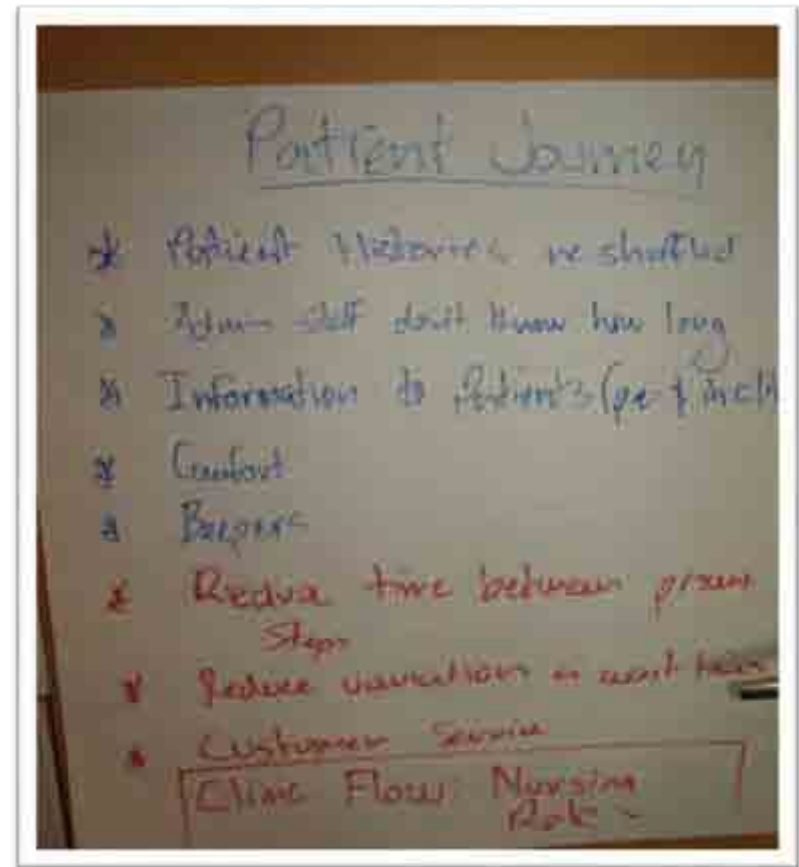 Patient Journey
* Patient Histories
* Admin staff don't know how long
* Information to Patients (pre &
* Comfort
* Beepers
* Reduce time between process
Steps
* Reduce variations in wait times
* Customer Service
Clinic Flow Nursing
Role